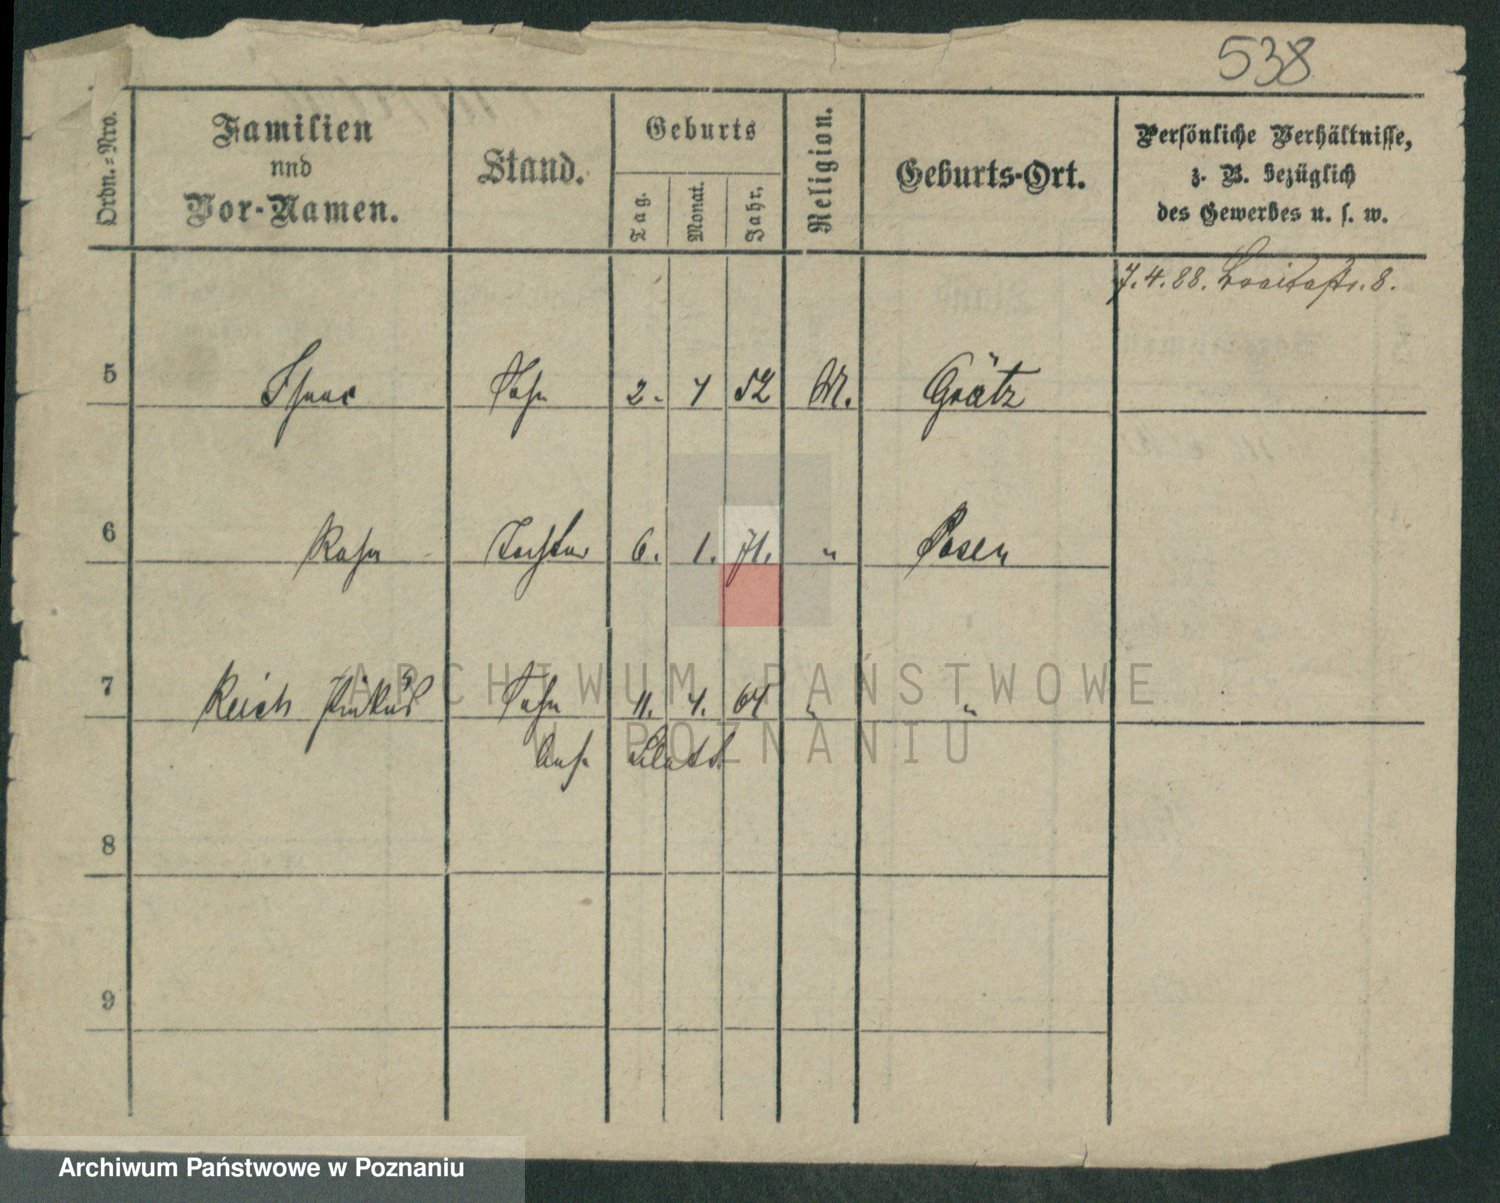 538
Ordn.=Nro.
Familien
nnd
Vor-Namen.
Stand.
Geburts
Tag.
Monat.
Jahr.
Religion.
Geburts-Ort.
Persönliche Verhältnisse,
z. B. bezüglich
des Gewerbes u. s. w.
7.4.88. 8.
5 Isaac Sohn 2. 52 M. Grätz
6 Rosa Tochter 6. 1. 71. " Posen
7 Reich Pinkus Sohn 11. 4. 64 " "
ARCHIWUM PAŃSTWOWE
W POZNANIU
8
9
Archiwum Państwowe w Poznaniu